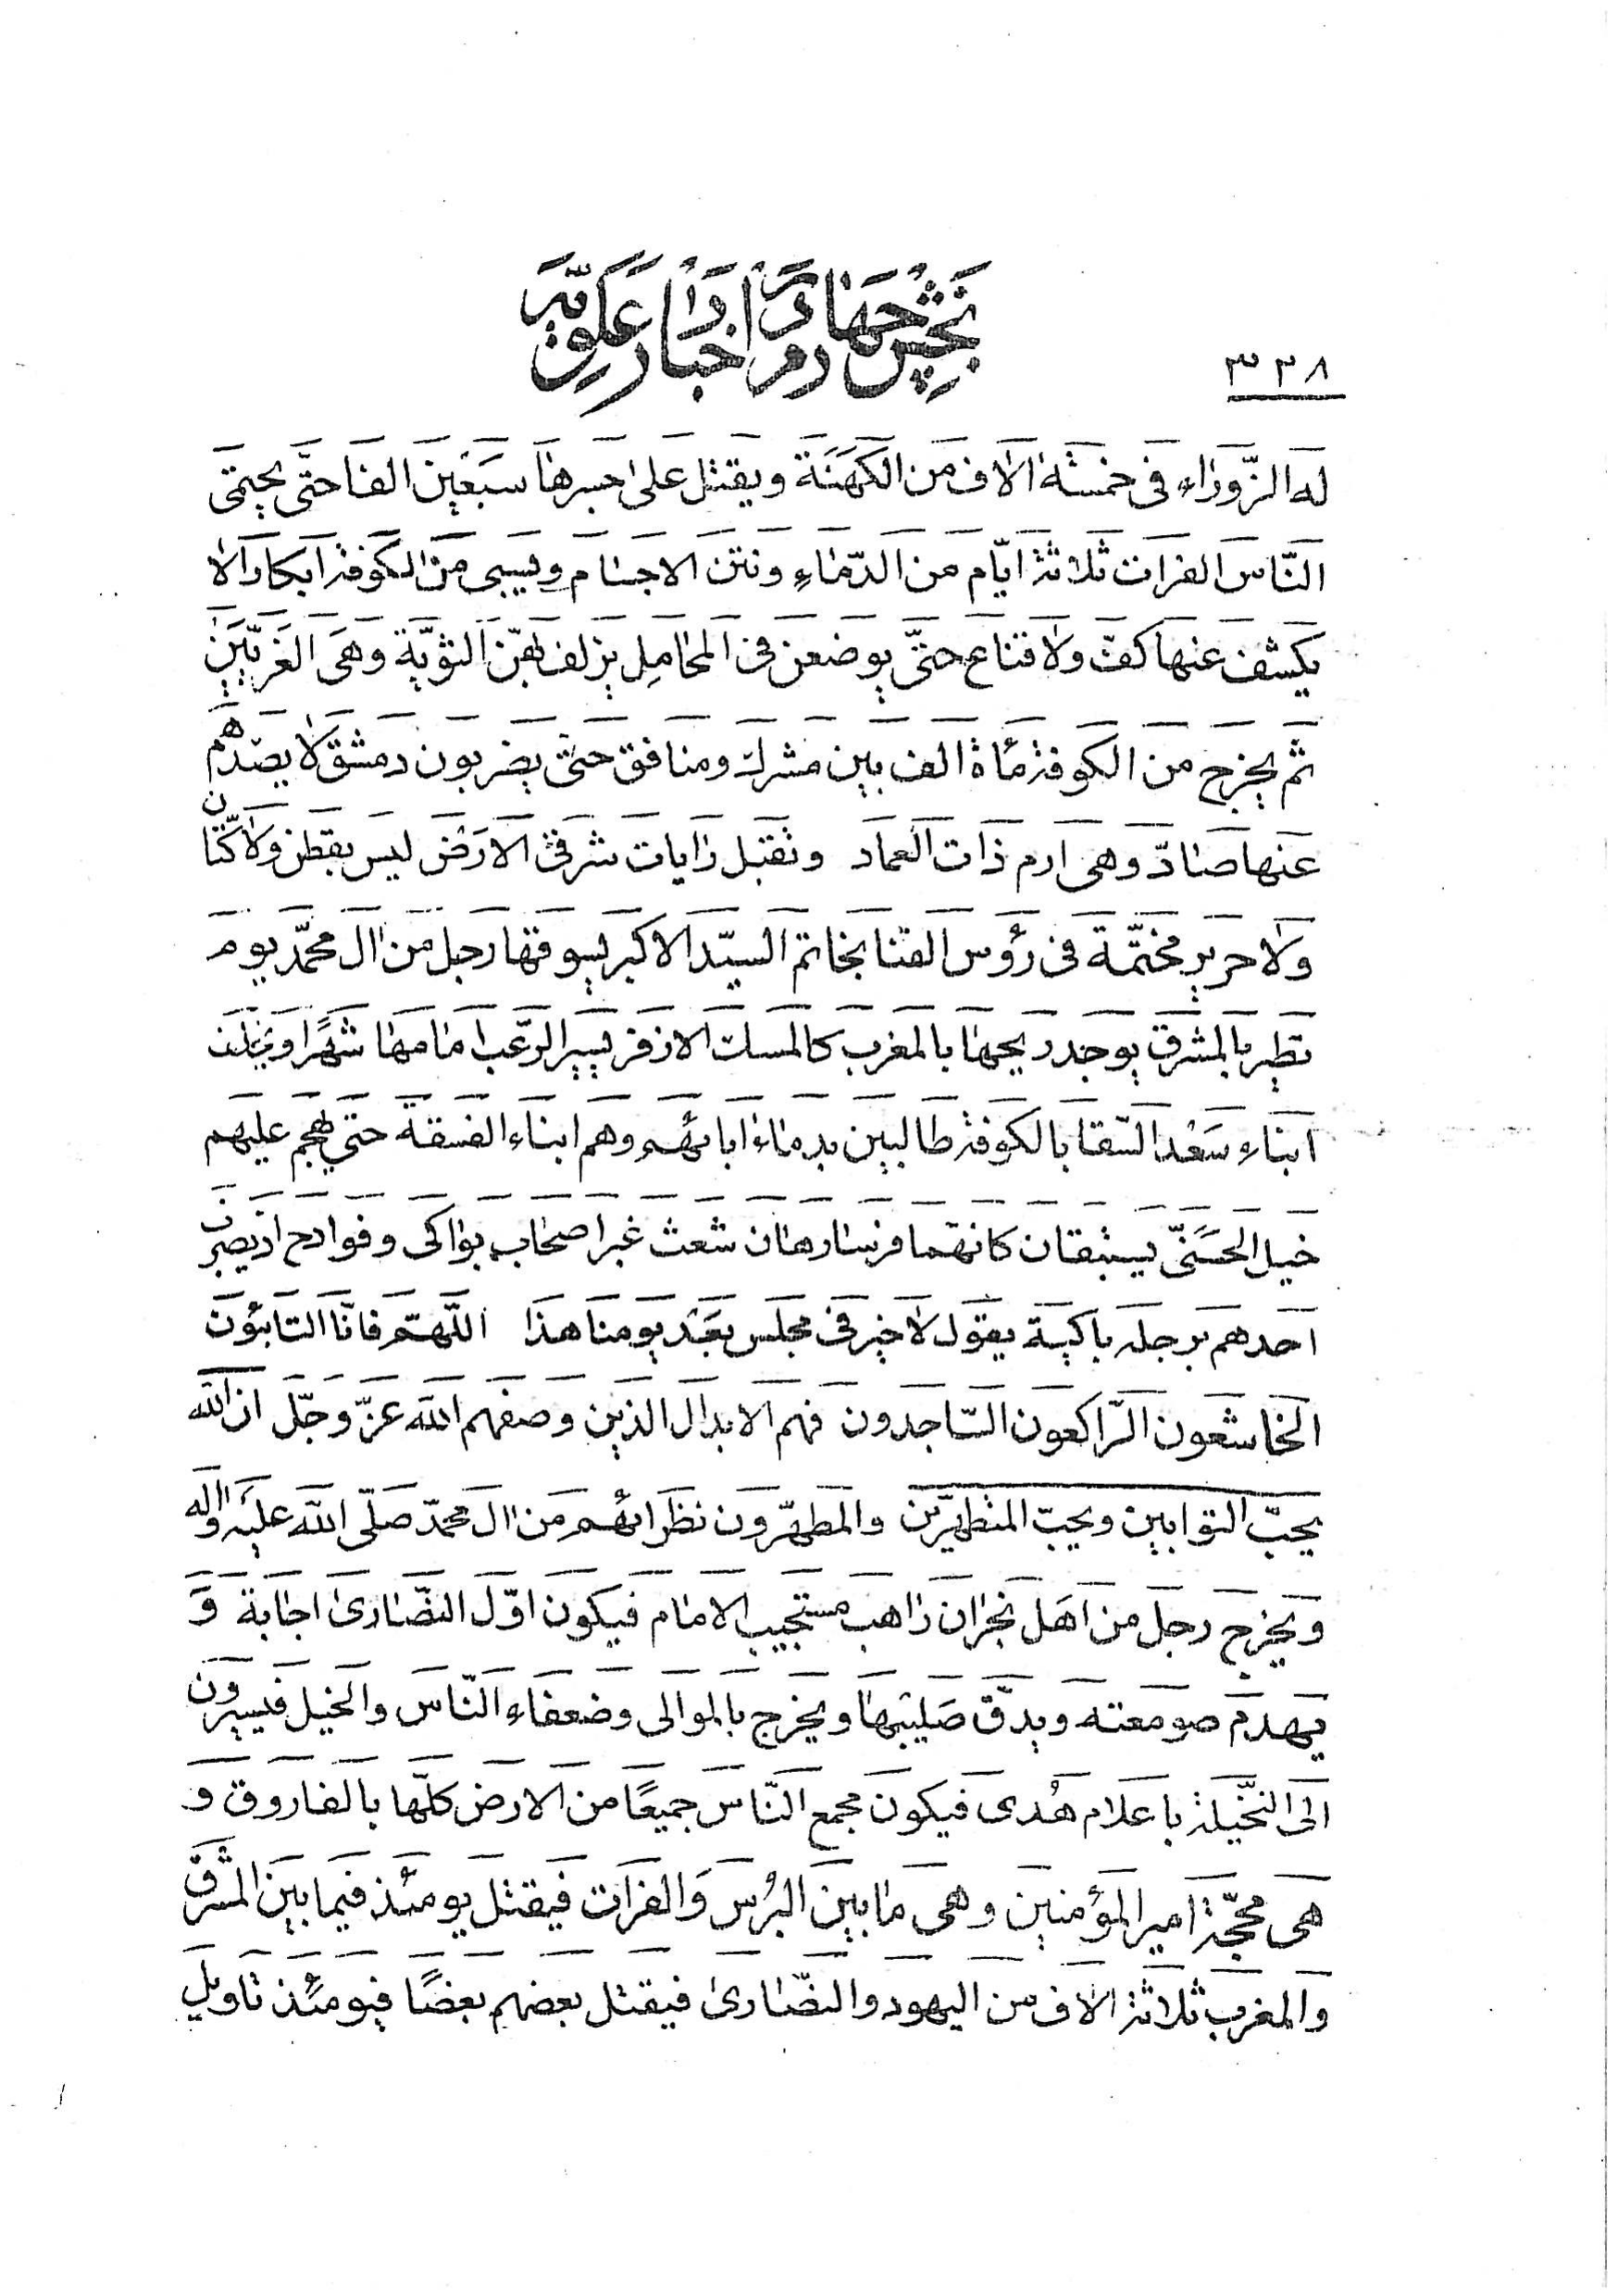 بخش چهارم در اخبار علویه
۳۳۸
له الزّوراء فی خمسة الاف من الکهنة ویقتل علی جسرها سبعین الفا حتّی یحتمی
النّاس الفرات ثلاثة ایّام من الدّماء ونتن الاجسام ویسبی من الکوفة ابکارا لا
یکشف عنها کفّ ولا قناع حتّی یوضعن فی المحامل یزلف بهنّ الثویّة وهی الغریّین
ثم یخرج من الکوفة مأة الف بین مشرك ومنافق حتی یضربون دمشق لا یصدّهم
عنها صادّ وهی ارم ذات العماد وتقبل رایات شرقی الارض لیس بقطن ولا کتّان
ولا حریر مختّمة فی رؤس القنا بخاتم السیّد الاکبر یسوقها رجل من ال محمّد یوم
تطیر بالمشرق یوجد ریحها بالمغرب کالمسك الاذفر یسیر الرّعب امامها شهرًا وینزلن
ابناء سعد السّقا بالکوفة طالبین بدماء ابائهم وهم ابناء الفسقة حتی یهجم علیهم
خیل الحسنیّ یستبقان کانّهما فرسا رهان شعث غبر اصحاب بواکی وفوادح اذ یضربن
احدهم برجله باکیة یقول لا خیر فی مجلس بعد یومنا هذا اللّهمّ فانّا التائبون
الخاشعون الرّاکعون السّاجدون فهم الابدال الذین وصفهم الله عزّ وجلّ ان الله
یحبّ التوابین ویحبّ المتطهّرین والمطهّرون نظرائهم من ال محمّد صلّی الله علیه واله
ویخرج رجل من اهل نجران راهب مستجیب الامام فیکون اوّل النصّاری اجابة و
یهدم صومعته ویدقّ صلیبها ویخرج بالموالی وضعفاء النّاس والخیل فیسیرون
الی النّخیلة باعلام هُدی فیکون مجمع النّاس جمیعًا من الارض کلّها بالفاروق و
هی محجّة امیر المؤمنین وهی ما بین البرُس والفرات فیقتل یومئذ فیما بین المشرق
والمغرب ثلاثة الاف من الیهود والنصّاری فیقتل بعضهم بعضًا فیومئذ تاویل